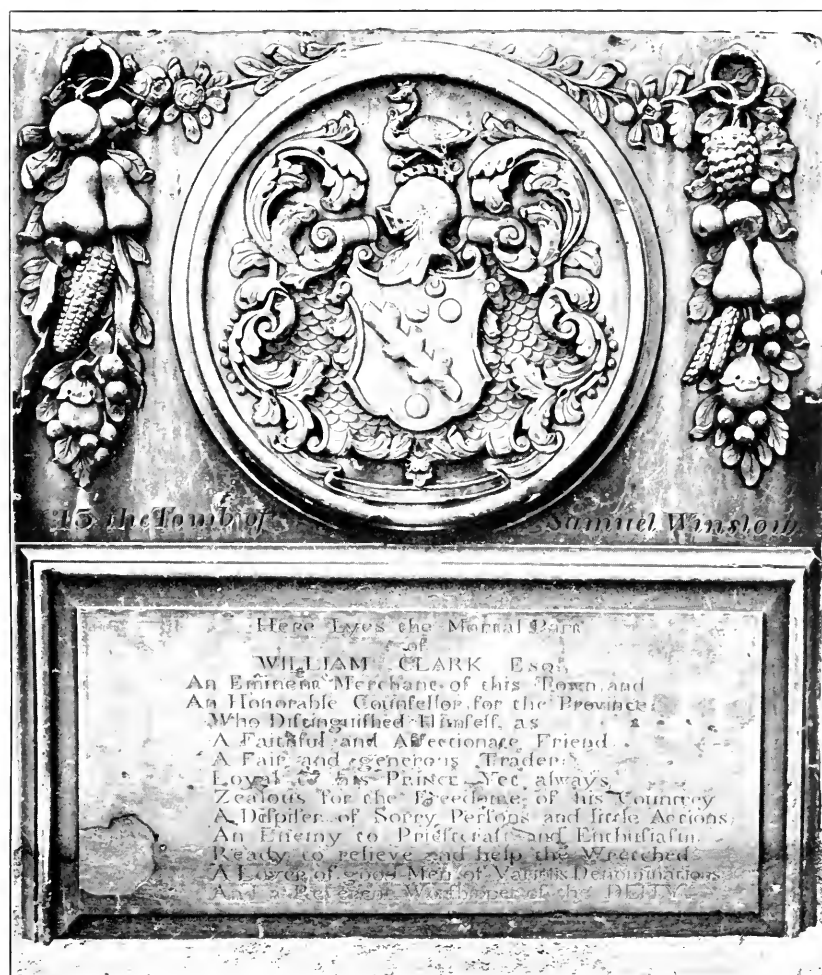 is the Tomb of Samuel Winslow
Here Lyes the Mortal Part
of
WILLIAM CLARK Esqr.
An Eminent Merchant of this Town, and
An Honorable Counſellor for the Province:
Who Diſtinguiſhed Himſelf as
A Faithful and Affectionate Friend
A Fair and generous Trader:
Loyal to his Prince Yet always
Zealous for the Freedome of his Countrey
A Diſpiſer of Sorry Perſons and little Actions,
An Enemy to Prieſtcraft and Enthuſiaſm
Ready to relieve and help the Wretched
A Lover of good Men of Various Denominations
And a Reverent Worſhipper of the DEITY